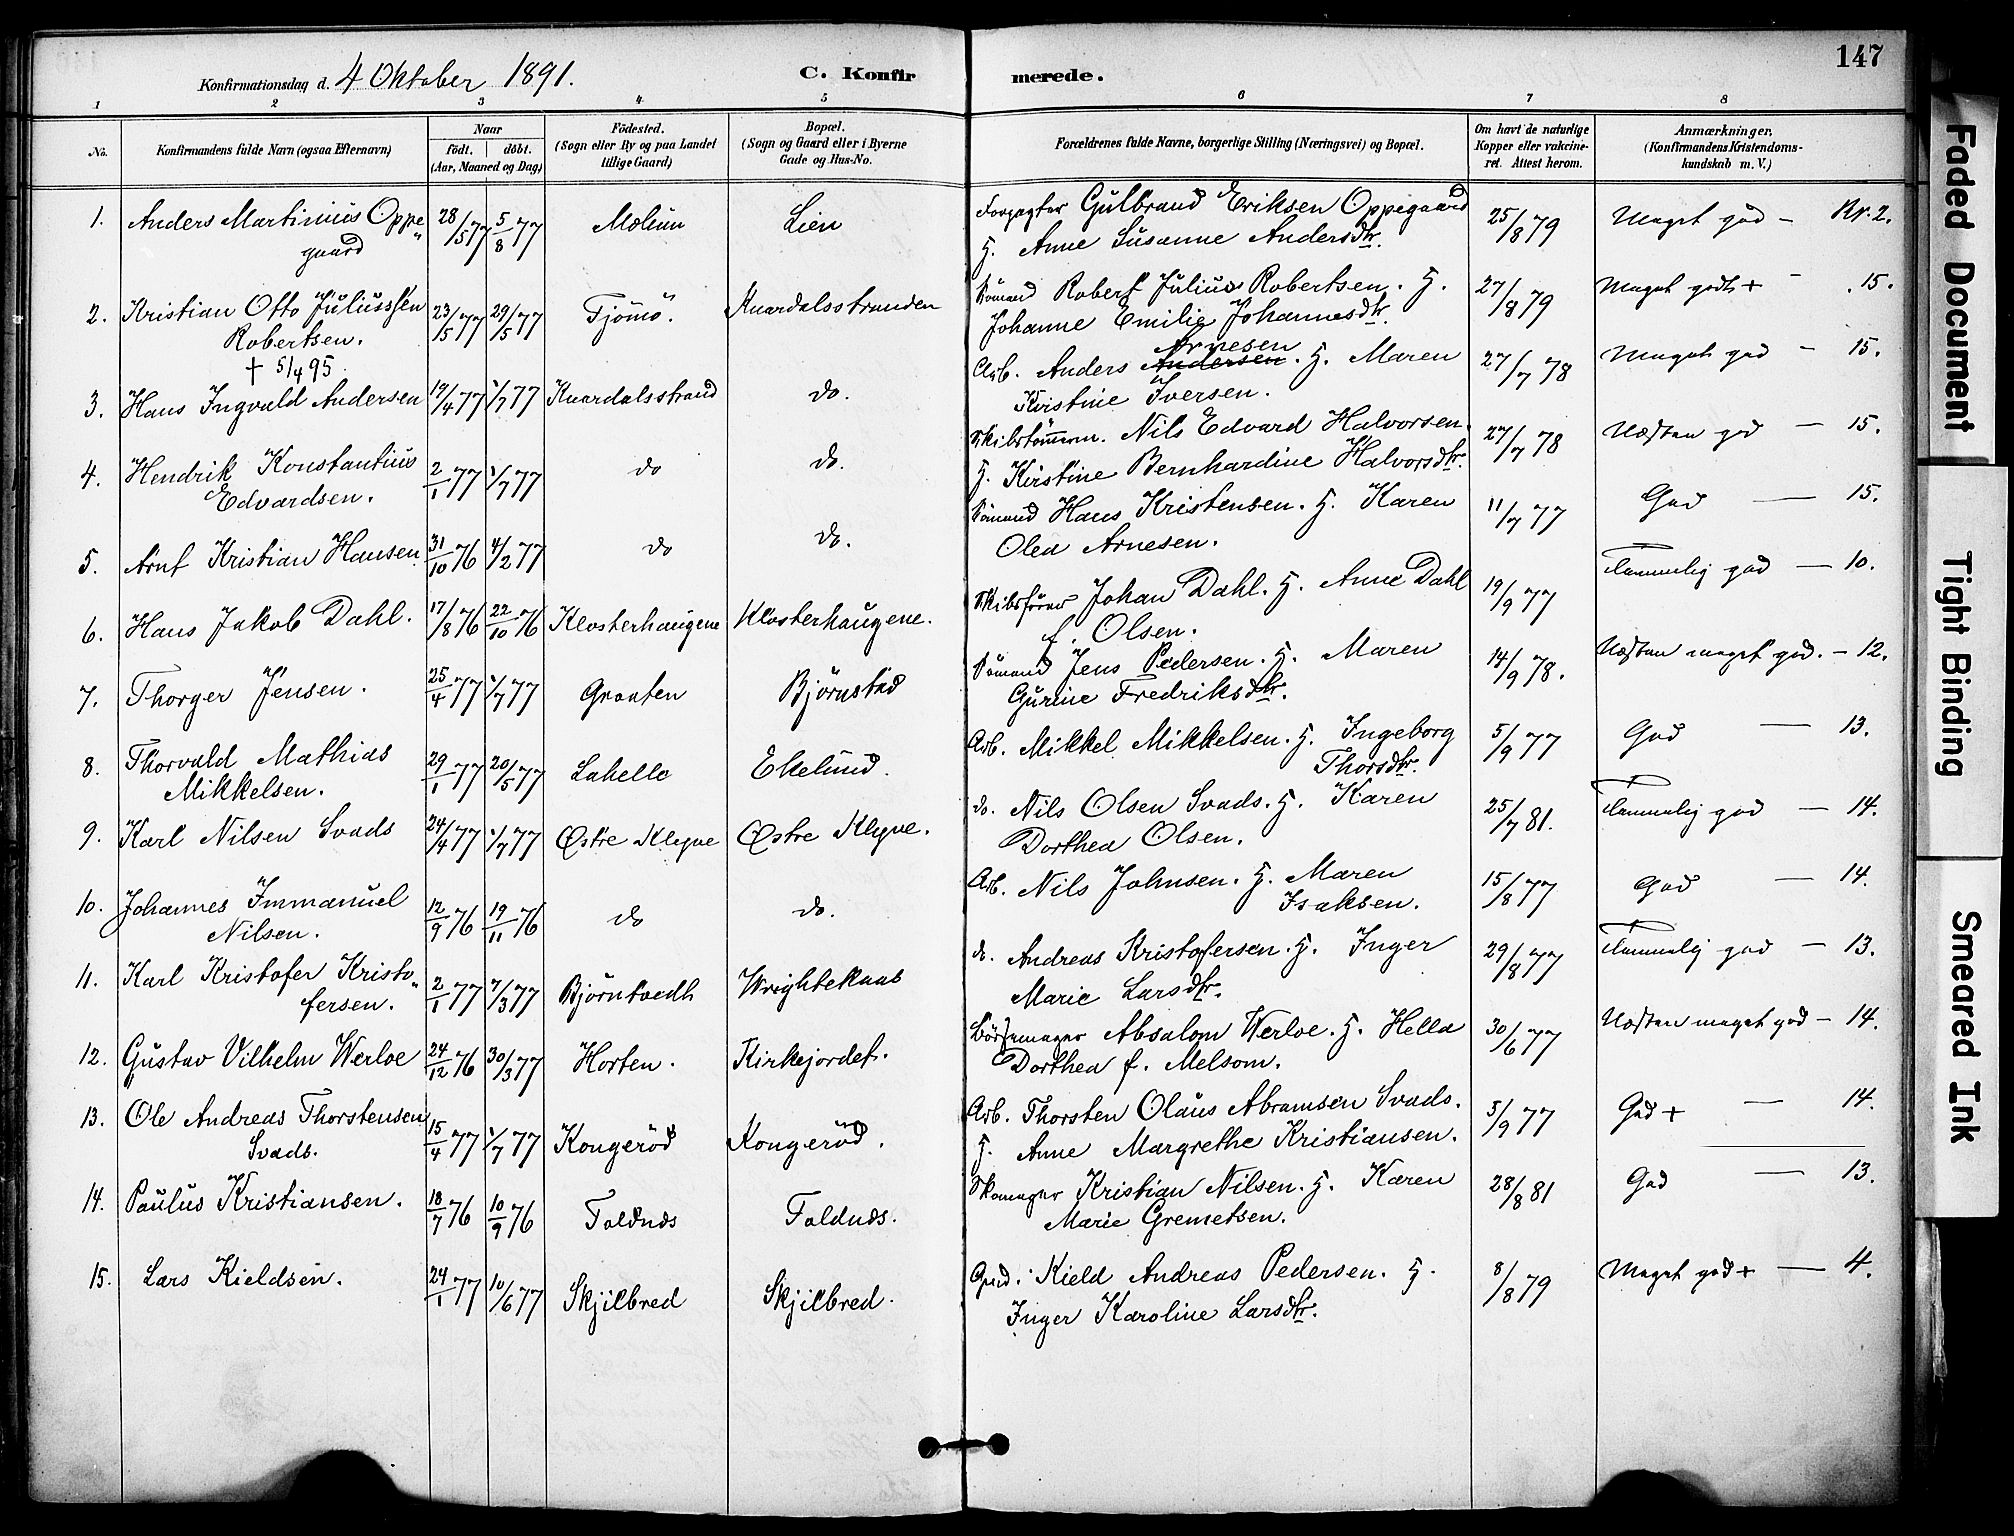 147
Konfirmationsdag d. 4 Oktober 1891.
C. Konfirmerede.
1 2 3 4 5 6 7 8
No.
Konfirmandens fulde Navn (ogsaa Efternavn)
Naar
födt. döbt.
(Aar, Maaned og Dag)
Födested.
(Sogn eller By og paa Landet
tillige Gaard)
Bopæl.
(Sogn og Gaard eller i Byerne
Gade og Hus-No.
Forældrenes fulde Navne, borgerlige Stilling (Næringsvei) og Bopæl.
Om havt de naturlige
Kopper eller vaccine-
ret. Attest herom.
Anmærkninger.
(Konfirmandens Kristendoms-
kundskab m. V.)
1. Anders Martinius Oppe- 28/5 77 5/8 77 Mælum Lien Forpagter Gulbrand Eriksen Oppegaard 25/8 79 Meget god - Kr. 2.
gaard H. Anne Susanne Andersdtr.
2. Kristian Otto Juliussen 23/5 77 29/5 77 Tjömö. Knardalsstranden Sömand Robert Julius Robertsen. H. 27/8 79 Meget godt + - 15.
Robertsen. Johanne Emilie Johannesdtr.
+ 5/4 95
Arnesen
3. Hans Ingvald Andersen 19/4 77 1/7 77 Knardalsstrand do. Arb. Anders Andersen. H. Maren 27/7 78 Meget god - 15.
Kristine Iversen.
4. Hendrik Konstantius 2/1 77 1/7 77 do do. Skibstömmerm. Nils Edvard Halvorsen. 27/7 78 Næsten god - 15.
Edvardsen. H. Kirstine Bernhardine Halvorsdtr.
5. Arnt Kristian Hansen 31/10 76 4/2 77 do do. Sömand Hans Kristensen. H. Karen 11/7 77 God - 15.
Olea Arnesen.
6. Hans Jakob Dahl. 17/8 76 22/10 76 Klosterhaugene Klosterhaugene. Skibsförer Johan Dahl. H. Anne Dahl 19/9 77 Temmelig god - 10.
f. Olsen.
7. Thorger Jensen. 25/4 77 1/7 77 Graaten Björnstad Sömand Jens Pedersen. H. Maren 14/9 78. Næsten meget god. - 12.
Gurine Fredriksdtr.
8. Thorvald Mathias 29/1 77 20/5 77 Lahelle Ekelund. Arb. Mikkel Mikkelsen. H. Ingeborg 5/9 77 God - 13.
Mikkelsen. Thorsdtr.
9. Karl Nilsen Svads 24/4 77 1/7 77 Østre Klyve Østre Klyve. do. Nils Olsen Svads. H. Karen 25/7 81. Temmelig god - 14.
Dorthea Olsen.
10. Johannes Immanuel 12/9 76 19/11 76 do do. Arb. Nils Johnsen. H. Maren 15/8 77 God - 14.
Nilsen. Isaksen.
11. Karl Kristofer Kristo- 2/1 77 7/3 77 Björntvedt Wrightekaas do. Andreas Kristofersen. H. Inger 29/8 77 Temmelig god - 13.
fersen. Marie Larsdtr.
12. Gustav Vilhelm Werloe 24/12 76 30/3 77 Horten. Kirkejordet. Börsemager Absalom Werloe. H. Hella 30/6 77 Næsten meget god - 14.
Dorthea f. Melsom.
13. Ole Andreas Thorstensen 15/4 77 1/7 77 Kongeröd Kongeröd. Arb. Thorsten Olaus Abramsen Svads. 5/9 77 God + - 14.
Svads. H. Anne Margrethe Kristiansen.
14. Paulus Kristiansen. 18/7 76 10/9 76 Foldnes Foldnes. Skomager Kristian Nilsen. H. Karen 28/8 81 God - 13.
Marie Gremetsen.
15. Lars Kieldsen. 24/1 77 10/6 77 Skjilbred Skjilbred. Grd. Kield Andreas Pedersen. H. 8/8 79 Meget god + - 4.
Inger Karoline Larsdtr.
Faded Document
Tight Binding
Smeared Ink